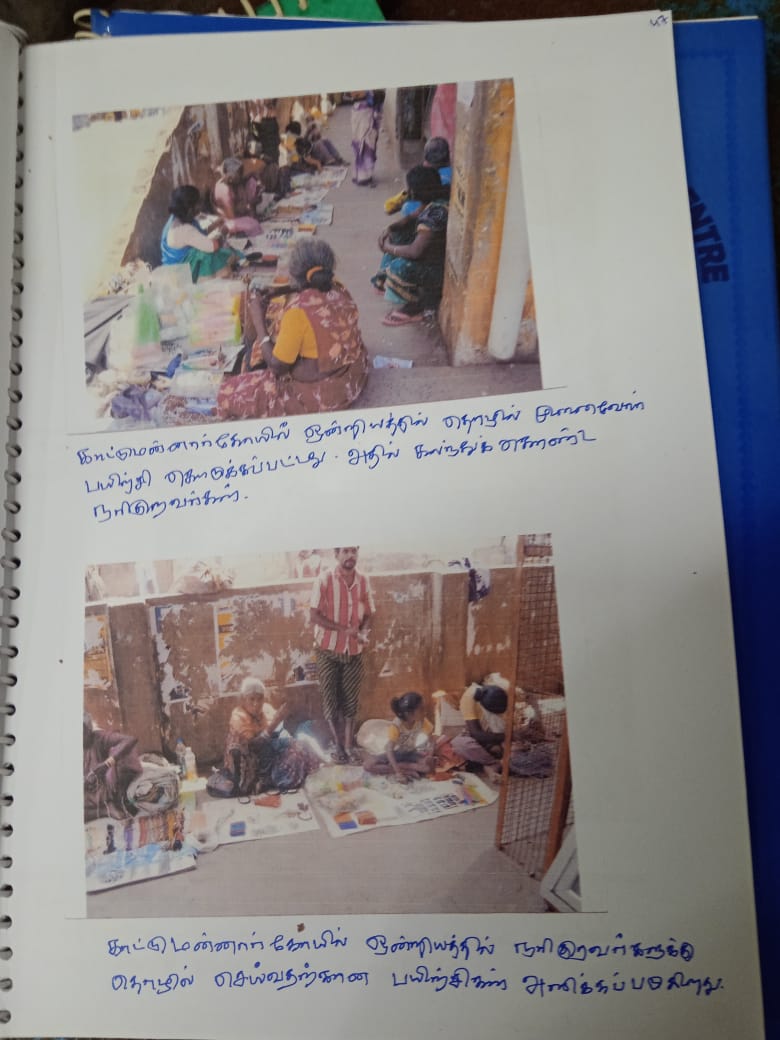 47
காட்டுமன்னார்கோயில் ஒன்றியத்தில் தொழில் முனைவோர்
பயிற்சி கொடுக்கப்பட்டது. அதில் கலந்துக் கொண்ட
நரிகுறவர்கள்.
காட்டுமன்னார் கோயில் ஒன்றியத்தில் நரிகுறவர்களுக்கு
தொழில் செய்வதற்கான பயிற்சிகள் அளிக்கப்படுகிறது.
ENTRE